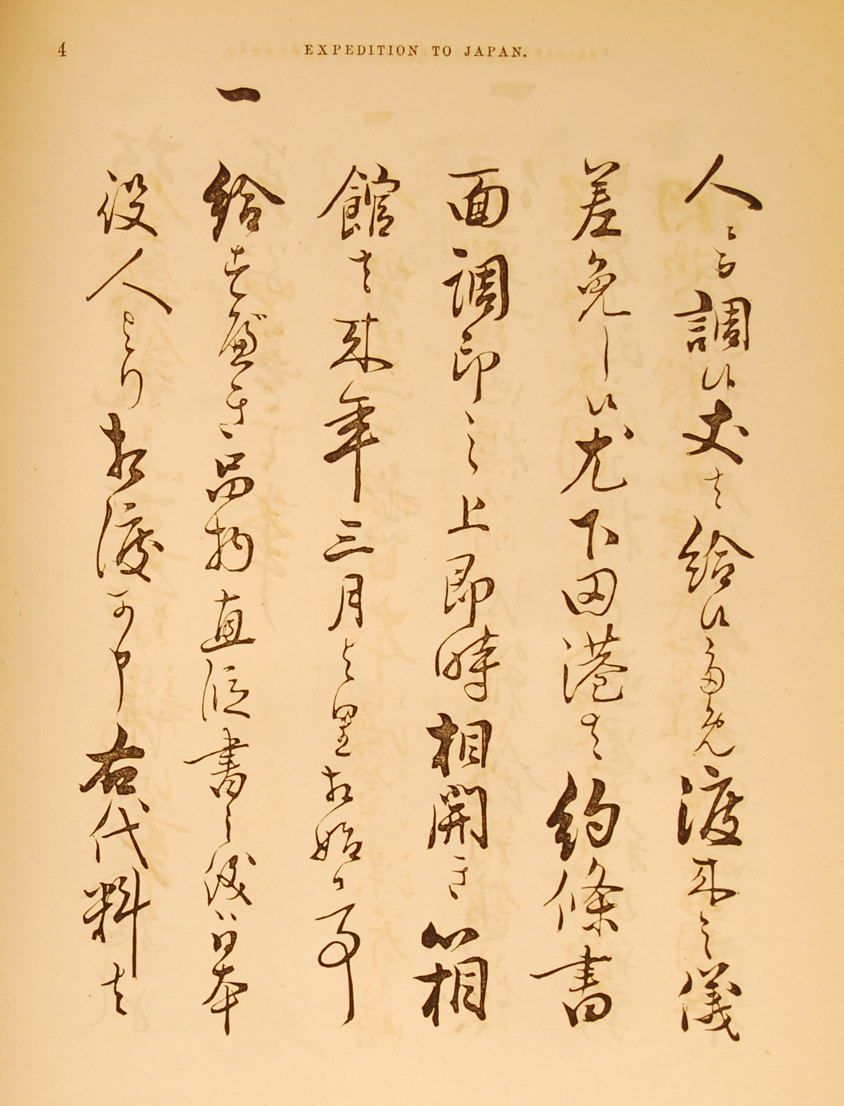 4
EXPEDITION TO JAPAN.
人ニ而調候丈は給候ため渡来之儀
差免し候尤下田港は約條書
面調印之上即時相開き箱
館は来年三月より相始候事
一給すべき品物直段書之儀ハ日本
役人より相渡可申右代料は